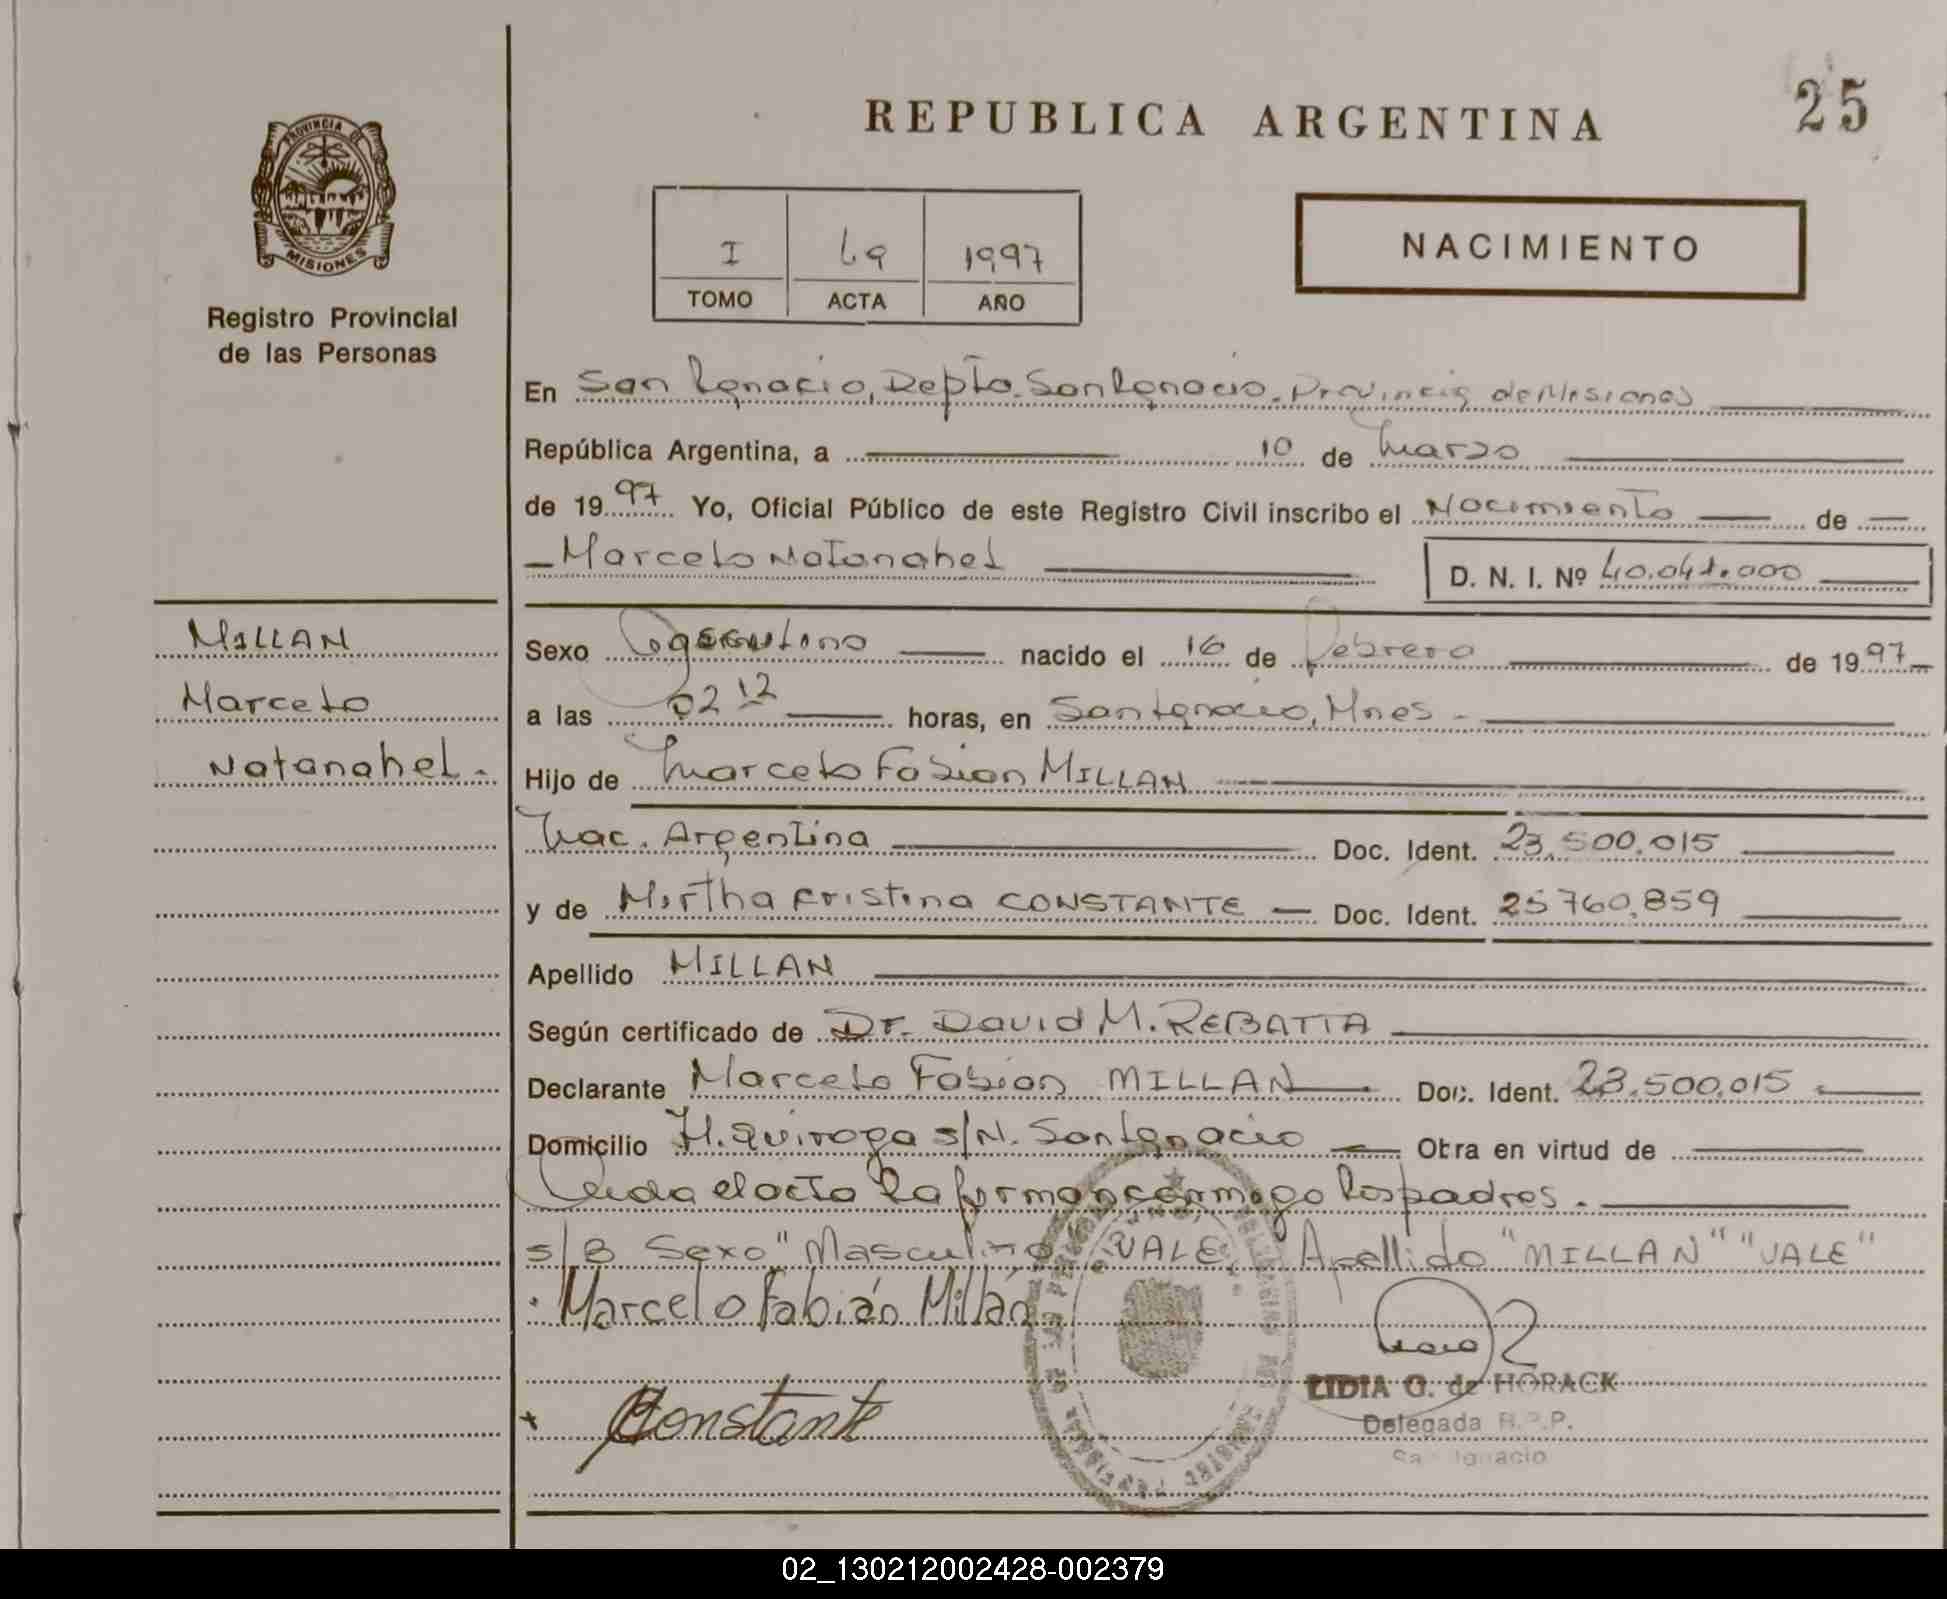 REPUBLICA ARGENTINA
25
PROVINCIA DE
MISIONES
Registro Provincial
de las Personas
I 49 1997
TOMO ACTA AÑO
NACIMIENTO
En San Ignacio, Depto. San Ignacio. Provincia de Misiones
República Argentina, a 10 de Marzo
de 1997 Yo, Oficial Público de este Registro Civil inscribo el Nacimiento de
Marcelo Natanahel D. N. I. Nº 40.041.000
MILLAN
Marcelo
Natanahel.
Sexo nacido el 16 de Febrero de 1997
a las 02 12 horas, en San Ignacio, Mnes.
Hijo de Marcelo Fabian MILLAN
Nac. Argentina Doc. Ident. 23.500.015
y de Mirtha Cristina CONSTANTE Doc. Ident. 25760.859
Apellido MILLAN
Según certificado de Dr. David M. REBATTA
Declarante Marcelo Fabian MILLAN Doc. Ident. 23.500.015
Domicilio H. Quiroga s/N. San Ignacio Obra en virtud de
Leida el acta la forman conmigo los padres.
s/B Sexo "Masculino" VALE, Apellido "MILLAN" "VALE"
Marcelo Fabián Millán
Constante
LIDIA G. de HORACK
Delegada R.P.P.
San Ignacio
02_130212002428-002379